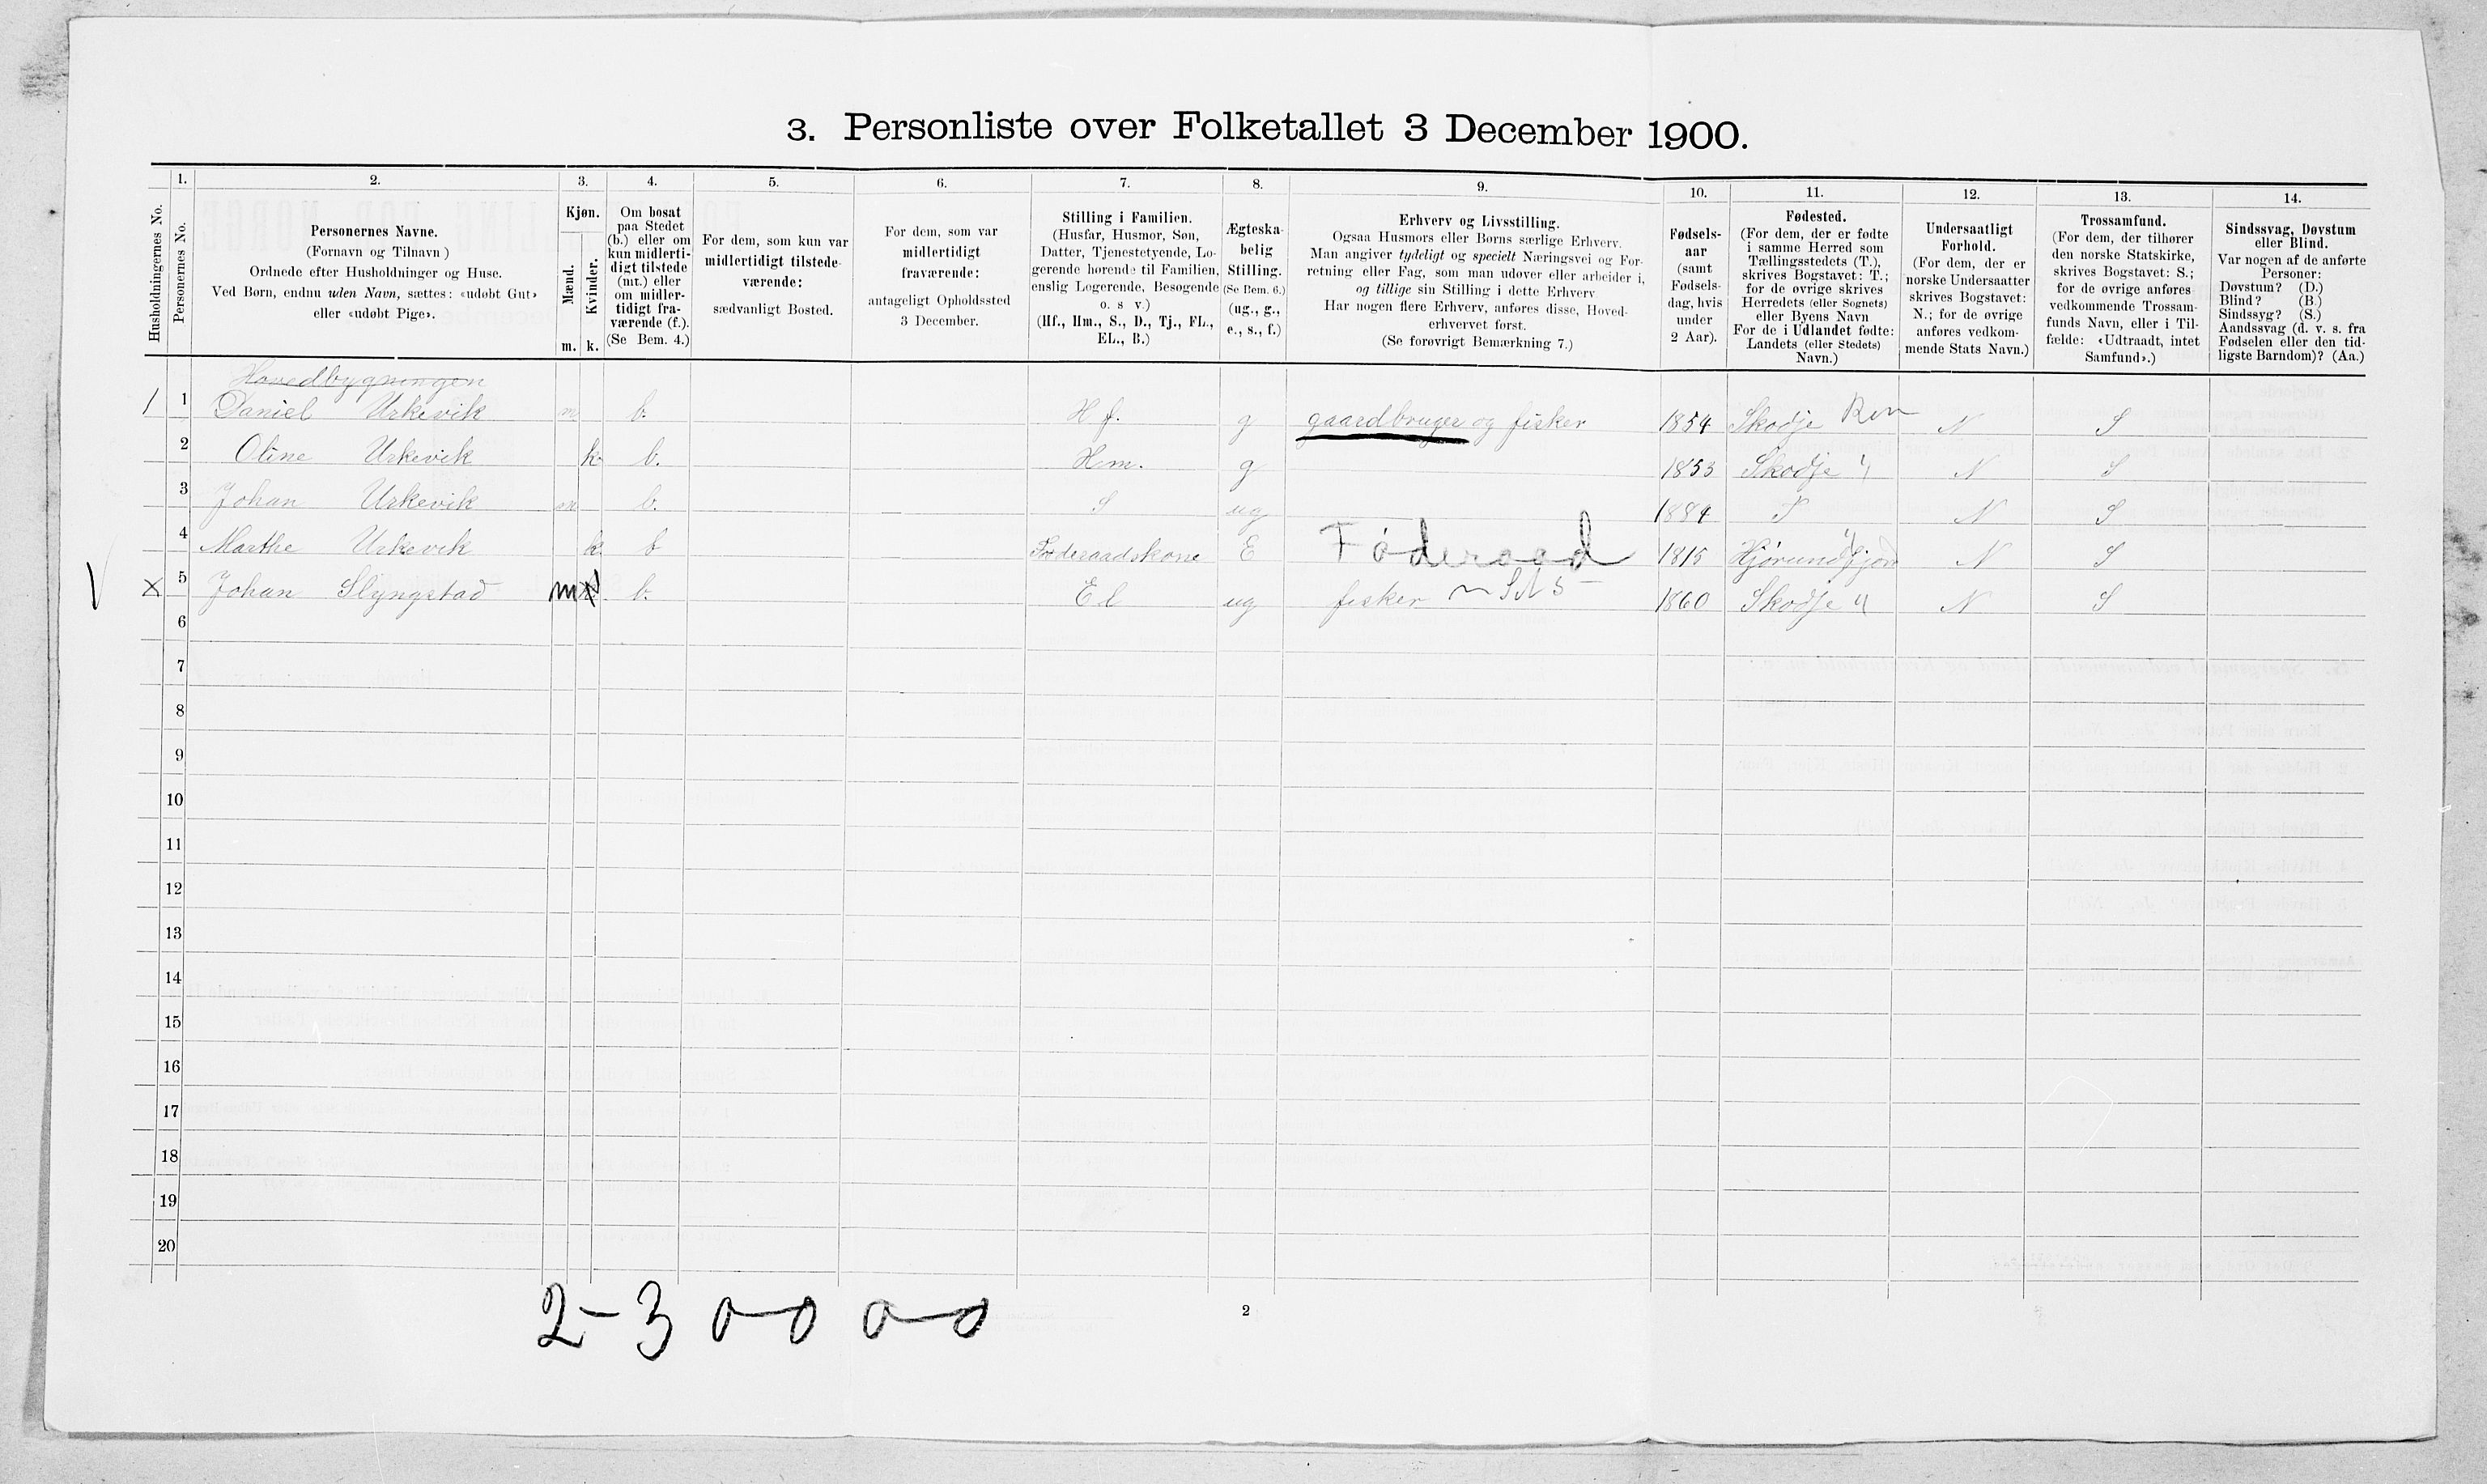 3. Personliste over Folketallet 3 December 1900.
1. 2. 3. 4. 5. 6. 7. 8. 9. 10. 11. 12. 13. 14.
Husholdningernes No.
Personernes No.
Personernes Navne.
(Fornavn og Tilnavn)
Ordnede efter Husholdninger og Huse.
Ved Børn, endnu uden Navn, sættes: «udøbt Gut»
eller «udøbt Pige».
Kjøn.
Mænd.
Kvinder.
m. k.
Om bosat
paa Stedet
(b.) eller om
kun midlerti-
digt tilstede
(mt.) eller
om midler-
tidigt fra-
værende (f.).
(Se Bem. 4.)
For dem, som kun var
midlertidigt tilstede-
værende:
sædvanligt Bosted.
For dem, som var
midlertidigt
fraværende:
antageligt Opholdssted
3 December.
Stilling i Familien.
(Husfar, Husmor, Søn,
Datter, Tjenestetyende, Lo-
gerende hørende til Familien,
enslig Logerende, Besøgende
o. s v.)
(Hf., Hm., S., D., Tj., FL.,
EL., B.)
Ægteska-
belig
Stilling.
(Se Bem. 6.)
(ug., g.,
e., s., f.)
Erhverv og Livsstilling.
Ogsaa Husmors eller Børns særlige Erhverv.
Man angiver tydeligt og specielt Næringsvei og For-
retning eller Fag, som man udøver eller arbeider i,
og tillige sin Stilling i dette Erhverv.
Har nogen flere Erhverv, anføres disse, Hoved-
erhvervet først.
(Se forøvrigt Bemærkning 7.)
Fødsels-
aar
(samt
Fødsels-
dag, hvis
under
2 Aar).
Fødested.
(For dem, der er fødte
i samme Herred som
Tællingsstedets (T.),
skrives Bogstavet: T.;
for de øvrige skrives
Herredets (eller Sognets)
eller Byens Navn
For de i Udlandet fødte:
Landets (eller Stedets)
Navn.)
Undersaatligt
Forhold.
(For dem, der er
norske Undersaatter
skrives Bogstavet:
N.; for de øvrige
anføres vedkom-
mende Stats Navn.)
Trossamfund.
(For dem, der tilhører
den norske Statskirke,
skrives Bogstavet: S.;
for de øvrige anføres
vedkommende Trossam-
funds Navn, eller i Til-
fælde: «Udtraadt, intet
Samfund».)
Sindssvag, Døvstum
eller Blind.
Var nogen af de anførte
Personer:
Døvstum? (D.)
Blind? (B.)
Sindssyg? (S.)
Aandssvag (d. v. s. fra
Fødselen eller den tid-
ligste Barndom)? (Aa.)
Hovedbygningen
1 1 Daniel Urkevik m b. Hf. g gaardbruger og fisker 1854 Skodje N S
2 Oline Urkevik k b. Hm. g 1853 Skodje " N S
3 Johan Urkevik m b. S ug 1884 T N S
4 Marthe Urkevik k b Føderaadskone E Føderaad 1815 Hjørundfjord " N S
x 5 Johan Slyngstad m b. El ug fisker 1860 Skodje " N S
6
7
8
9
10
11
12
13
14
15
16
17
18
19
20
2-3 0-0 0-0
2